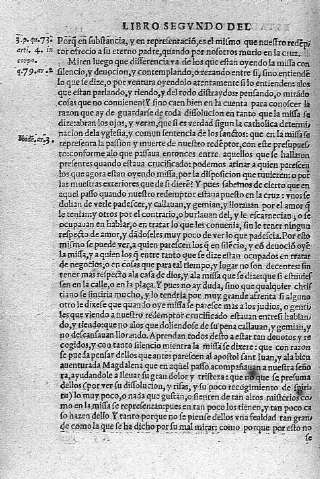 LIBRO SEGVNDO DEL
3.p.q.73. Porq̃ en substancia, y en representació, es el mismo que nuestro redẽp
arti. 4. in tor ofrecio a su eterno padre, quando por nosotros murio en la cruz.
corpo. Miren luego que differencia va de los que estan oyendo la missa con
q.79.ar.2. silencio, y deuocion, y contemplando, o rezando entre si, sino entiendẽ
lo que se dize, o por ventura oyendolo atentamente si lo entienden: alos
que estan parlando, y riendo, y del todo distraydos: pensando, o mirãdo
cosas que no conuienen? Y si no caen bien en la cuenta para conoscer la
razon que ay de guardarse de toda dissolucion en tanto que la missa se
dize: abran los ojos, y vean, que si es verdad segun la catholica determi
Ibidẽ.ar.3. nacion dela yglesia, y comun sentencia de los sanctos: que en la missa se
representa la passion y muerte de nuestro redẽptor, con este presupue-
sto: conforme alo que passaua entonces entre aquellos que se hallaron
presentes quando estaua crucificado: podemos afirmar a quien parescen
los que agora estan oyendo missa, por la disposicion que tuuieren: o por
las muestras exteriores que da si dieré? Y pues sabemos de cierto que en
aquel passo quando nuestro redemptor estaua puesto en la cruz: vnos se
dolian de verle padescer, y callauan, y gemian, y llorauan por el amor q̃
le tenian: y otros por el contrario, o burlauan del, y le escarnecian, o se
ocupauan en hablar, o en tratar lo que les conuenia, sin le tener ningun
respecto de amor, y dãdoseles muy poco de ver lo que padescia. Por esto
mismo se puede ver, a quien parescen los q̃ en silencio, y cõ deuociõ oyẽ
la missa, y a quien los q̃ entre tanto que se dize estan ocupados en tratar
de negocios, o en cosas que para tal tiempo, y lugar no son decentes: sin
tener mas respecto ala casa de dios, y ala missa que se dize que si estuuies
sen en la calle, o en la plaça. Y pues no ay duda, sino que qualquier chri
stiano se sintiria mucho, y lo tendria por muy grande affrenta si alguno
otro le dixese que quando oye missa se paresce mas a los judios, o genti-
les que viendo a nuestro redemptor crucificado estauan entre si hablan
do, y riendo: que no alos que doliendose de su pena callauan, y gemian, y
no descansauan llorando. Aprendan todos desto a estar tan deuotos y re
cogidos, y co tanto silencio mientra la missa se dixere: que con razon
se pueda pensar dellos que antes parescen al apostol sant Iuan, y ala biẽ
auenturada Magdalena que en aquel passo acompañauan a nuestra seño
ra, ayudandole a lleuar su gran dolor y tristeza: que no que se presuma
dellos (por ver su dissolucion, y risas, y su poco recogimiento de spiri-
tu) lo muy poco, o nada que gustan, o sienten de tan altos misterios co
mo en la missa se representan: pues en tan poco los tienen, y tan poco ca
so hazen dello. Y tanto porque no se piense dellos vna fealdad tan gran
de como la que se ha dicho por su mal mirar: como porque por esto no
se